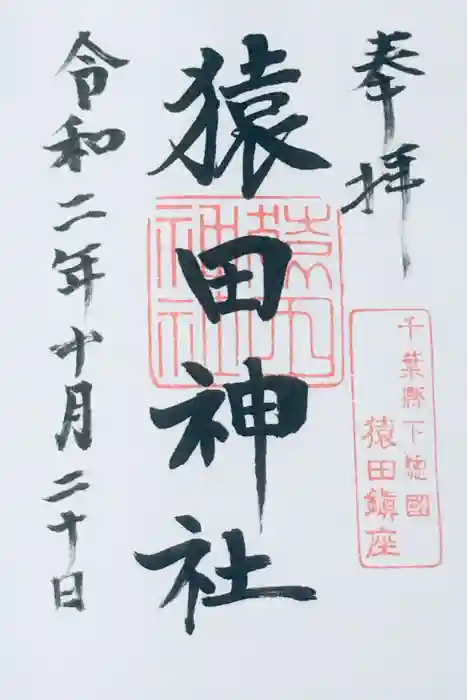 奉拝
千葉縣下総國
猿田鎮座
猿田神社
猿田神社
令和二年十月二十日